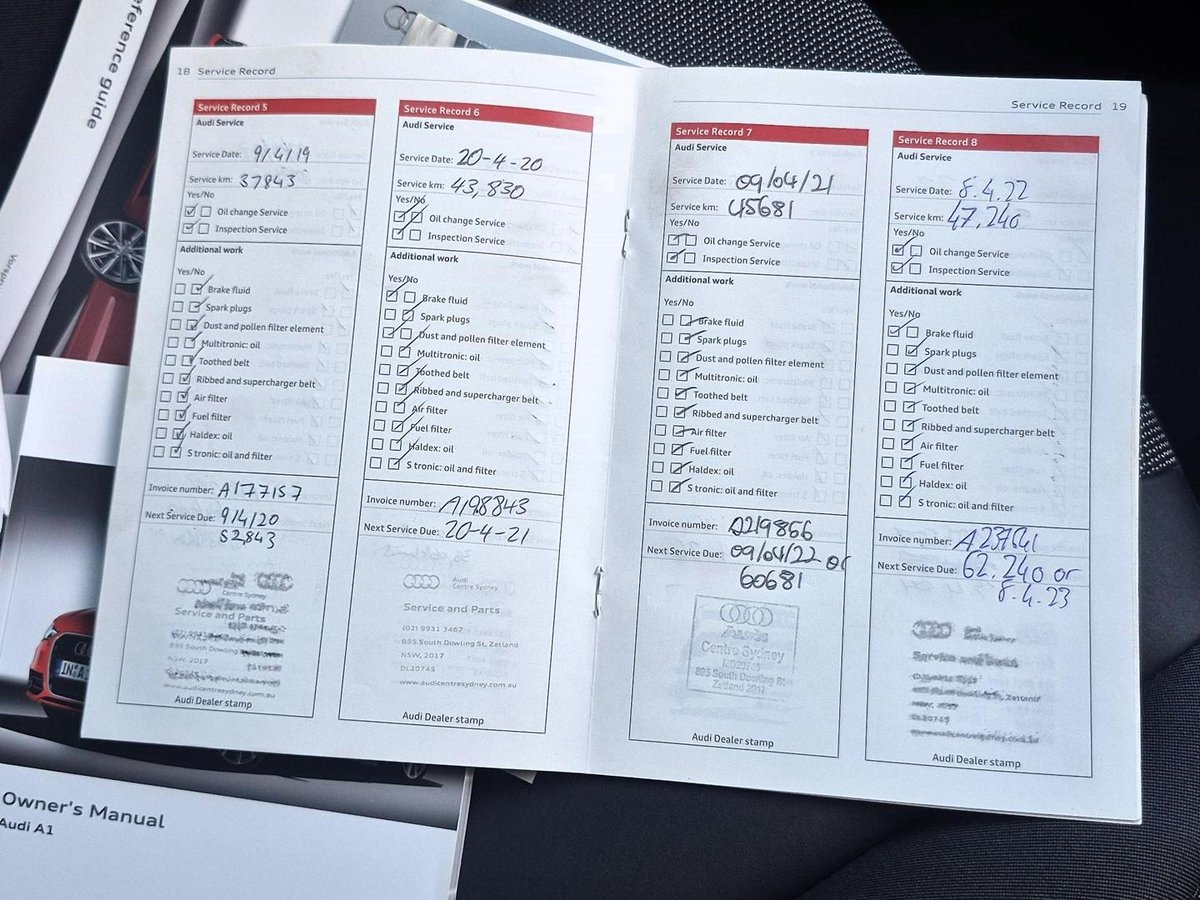 eference guide
18 Service Record
Service Record 5
Audi Service
Service Date: 9/4/19
Service km: 37843
Yes/No
Oil change Service
Inspection Service
Additional work
Yes/No
Brake fluid
Spark plugs
Dust and pollen filter element
Multitronic: oil
Toothed belt
Ribbed and supercharger belt
Air filter
Fuel filter
Haldex: oil
S tronic: oil and filter
Invoice number: A177157
Next Service Due: 9/4/20
52,843
Centre Sydney
Service and Parts
NSW, 2017
www.audicentresydney.com.au
Audi Dealer stamp
Service Record 6
Audi Service
Service Date: 20-4-20
Service km: 43,830
Yes/No
Oil change Service
Inspection Service
Additional work
Yes/No
Brake fluid
Spark plugs
Dust and pollen filter element
Multitronic: oil
Toothed belt
Ribbed and supercharger belt
Air filter
Fuel filter
Haldex: oil
S tronic: oil and filter
Invoice number: A198843
Next Service Due: 20-4-21
Audi
Centre Sydney
Service and Parts
(02) 9931 3467
895 South Dowling St, Zetland
NSW, 2017
DL20745
www.audicentresydney.com.au
Audi Dealer stamp
Service Record 19
Service Record 7
Audi Service
Service Date: 09/04/21
Service km: 45681
Yes/No
Oil change Service
Inspection Service
Additional work
Yes/No
Brake fluid
Spark plugs
Dust and pollen filter element
Multitronic: oil
Toothed belt
Ribbed and supercharger belt
Air filter
Fuel filter
Haldex: oil
S tronic: oil and filter
Invoice number: A219866
Next Service Due: 09/04/22 or
60681
Centre Sydney
895 South Dowling St
Zetland 2017
Audi Dealer stamp
Service Record 8
Audi Service
Service Date: 8.4.22
Service km: 47,240
Yes/No
Oil change Service
Inspection Service
Additional work
Yes/No
Brake fluid
Spark plugs
Dust and pollen filter element
Multitronic: oil
Toothed belt
Ribbed and supercharger belt
Air filter
Fuel filter
Haldex: oil
S tronic: oil and filter
Invoice number:
Next Service Due: 62,240 or
8.4.23
DL20745
Audi Dealer stamp
Owner's Manual
Audi A1